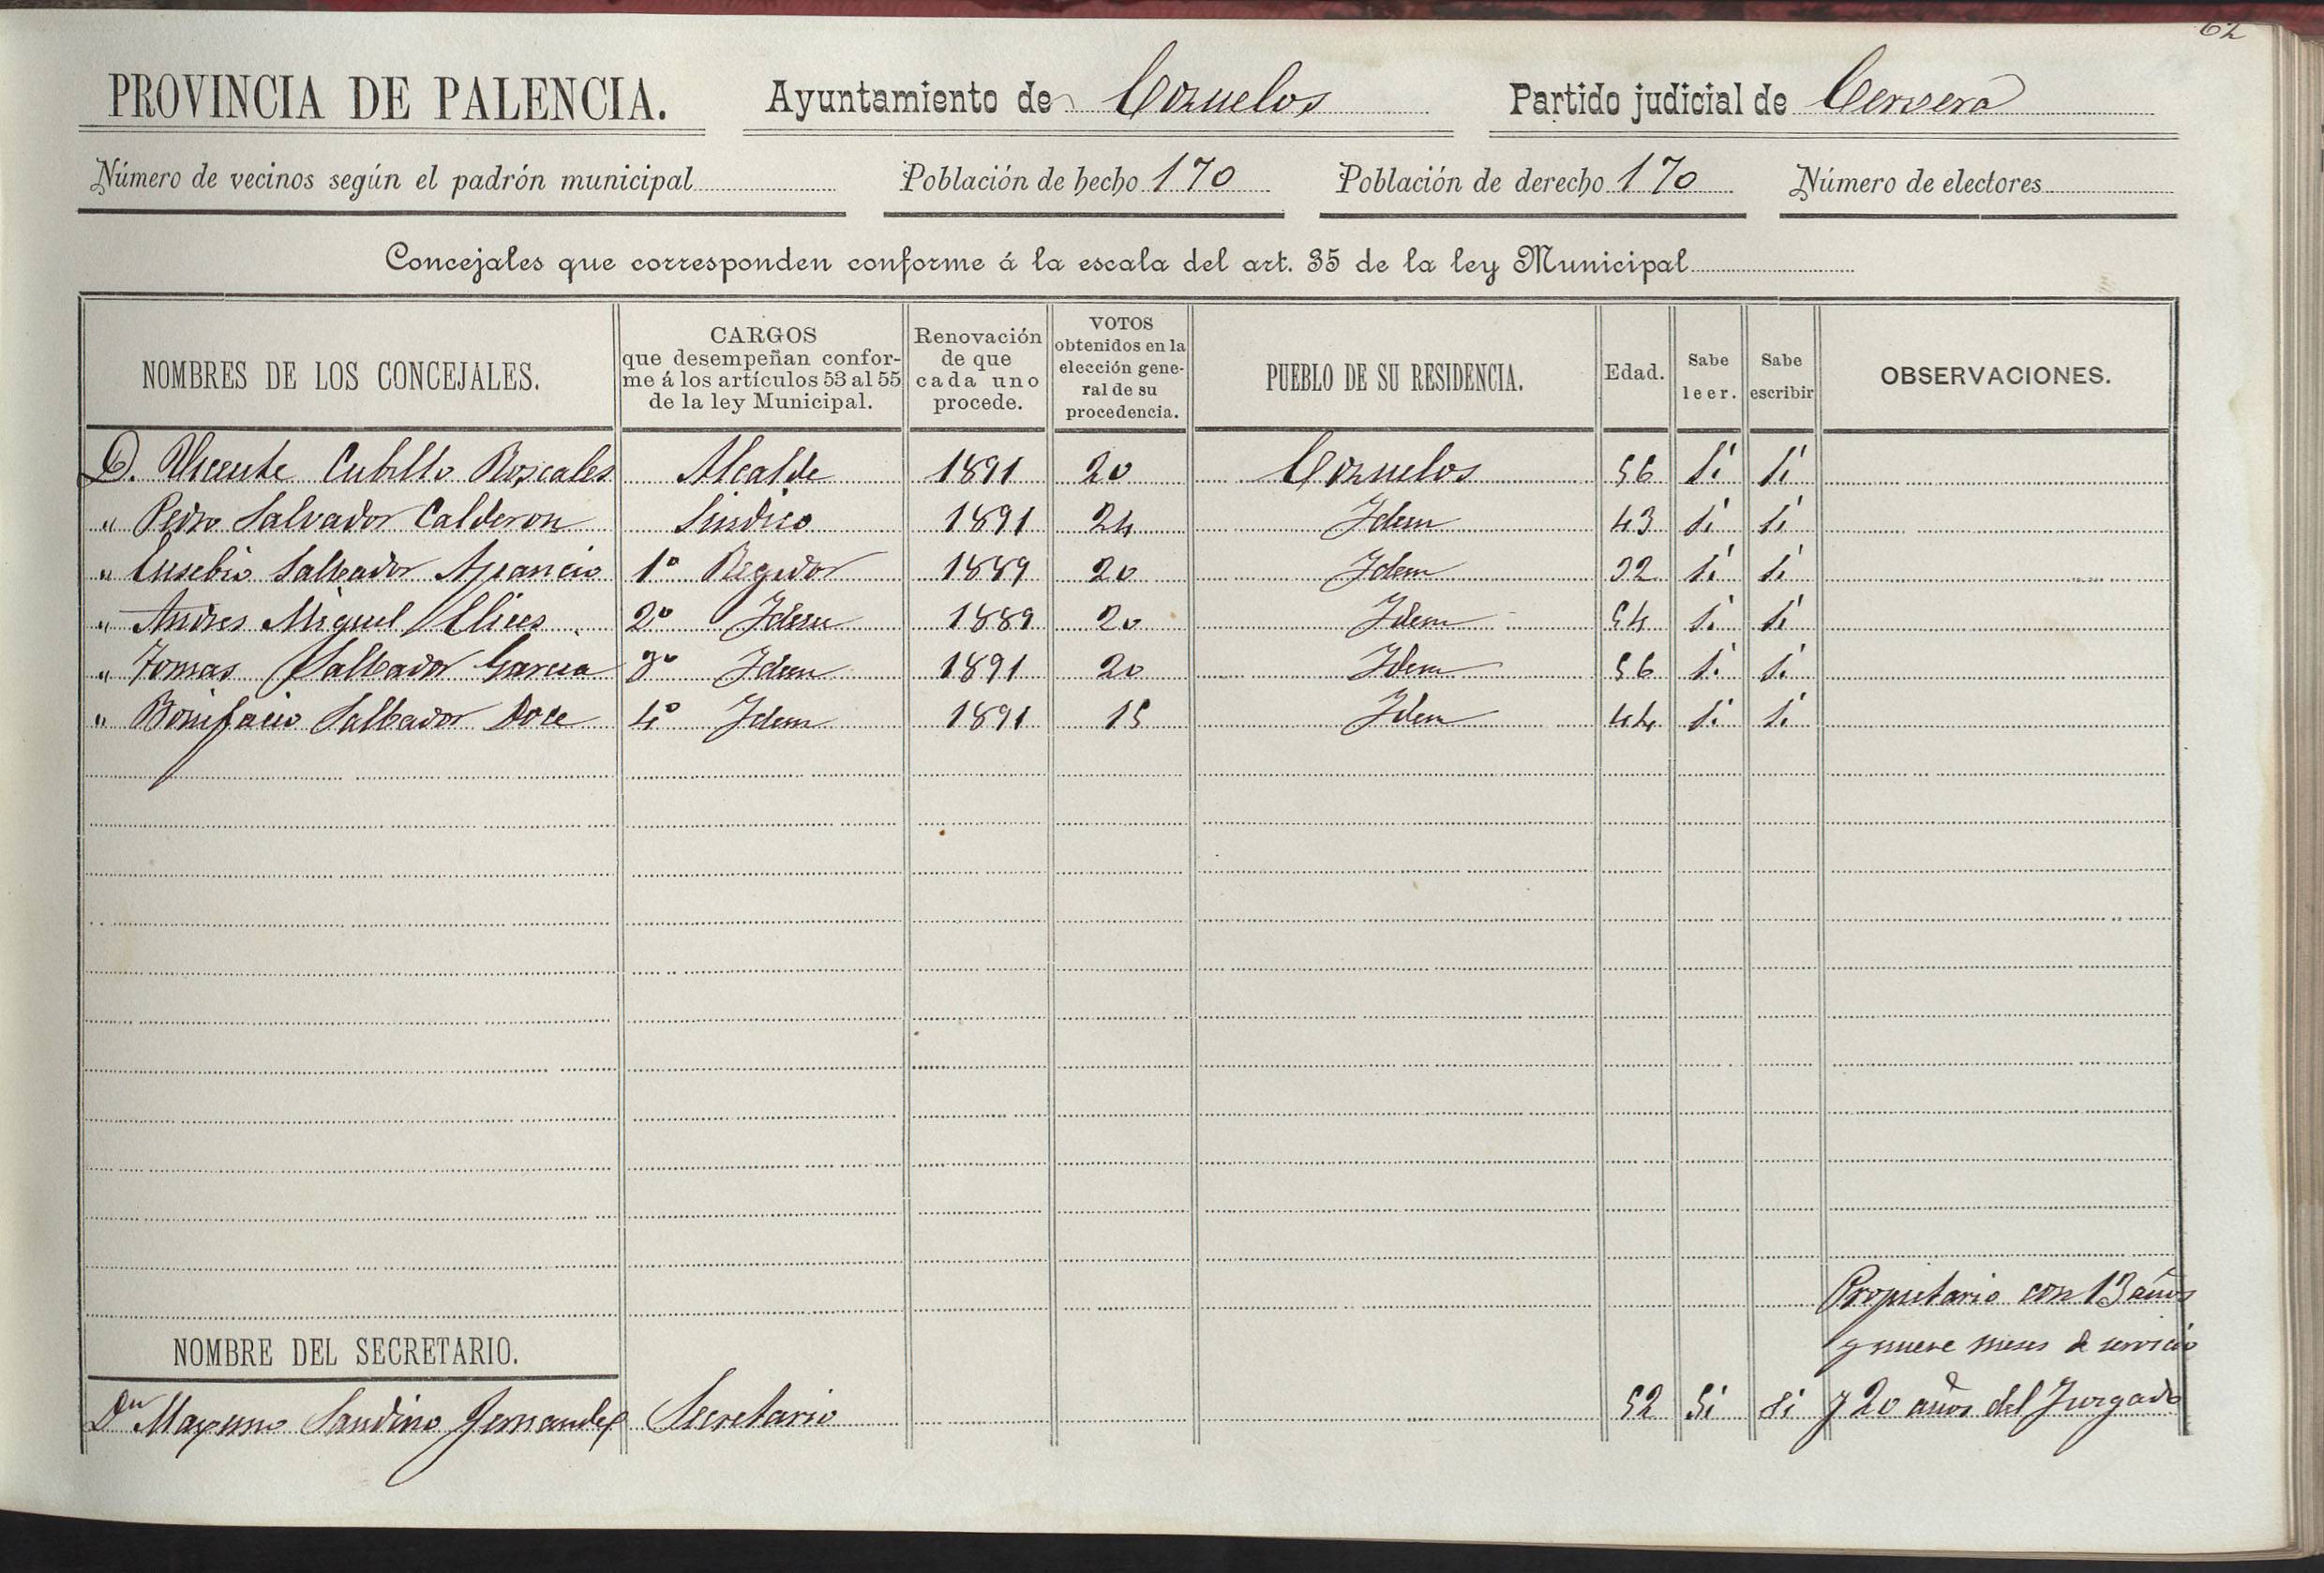 62
PROVINCIA DE PALENCIA. Ayuntamiento de Cozuelos Partido judicial de Cervera
Número de vecinos según el padrón municipal Población de hecho 170 Población de derecho 170 Número de electores
Concejales que corresponden conforme á la escala del art. 35 de la ley Municipal
NOMBRES DE LOS CONCEJALES. CARGOS que desempeñan conforme á los artículos 53 al 55 de la ley Municipal. Renovación de que cada uno procede. VOTOS obtenidos en la elección general de su procedencia. PUEBLO DE SU RESIDENCIA. Edad. Sabe leer. Sabe escribir OBSERVACIONES.
D. Vicente Cubillo Roscales Alcalde 1891 20 Cozuelos 56 Si Si
" Pedro Salvador Calderon Sindico 1891 24 Idem 43 Si Si
" Eusebio Salbador Aparicio 1º Regidor 1889 20 Idem 32 Si Si
" Andres Miguel Llices 2º Idem 1889 20 Idem 54 Si Si
" Tomas Salbador Garcia 3º Idem 1891 20 Idem 56 Si Si
" Bonifacio Salbador Doce 4º Idem 1891 15 Idem 44 Si Si
Propietario con 13 años
NOMBRE DEL SECRETARIO. y nueve meses de servicio
Dn Maximo Sandino Fernandez Secretario 52 Si Si y 20 años del Juzgado